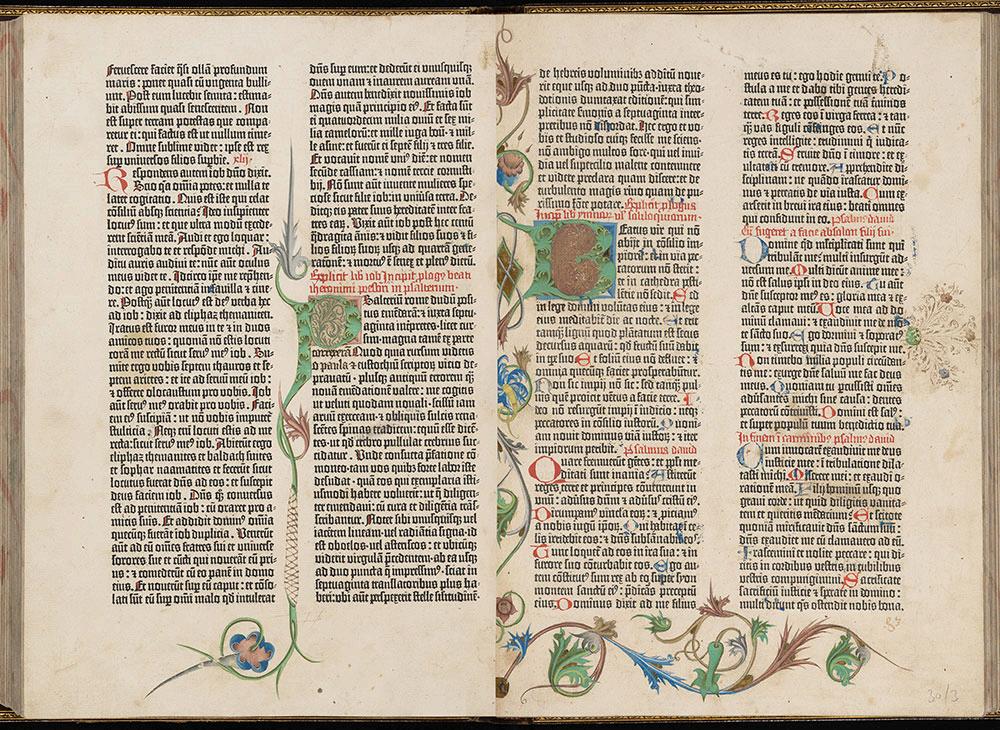 Fervescere faciet q̃si ollã profundum
maris: ponet quasi cũ ungenta bulli-
unt. Post eum lucebit semita: estima-
bit abissum quasi senescentem. Non
est super terram potestas que compa-
retur ei: qui factus est ut nullum time-
ret. Omne sublime videt: ipse est rex
sup universos filios supbie. xlij
Respondens autem iob dño dixit.
Scio qa oĩa potes: et nulla te
latet cogitatio. Quis est iste qui celat
cõsiliũ absq; sciencia? Ideo insipienter
locutus sum: et que ultra modũ excede-
rent sciẽtiã meã. Audi et ego loquar:
interrogabo te et respõde michi. Au-
ditu auris audivi te: nũc aũt oculus
meus videt te. Idcirco ipse me reprehen-
do: et ago penitentiã in favilla et cine-
re. Postq̃ aũt locutus est de9 verba hec
ad iob: dixit ad eliphaz themanitem.
Iratus est furor meus in te et in duos
amicos tuos: quoniã nõ estis locuti
corã me rectũ sicut serv9 me9 iob. Su-
mite ergo vobis septem thauros et se-
ptem arietes: et ite ad servũ meũ iob:
et offerte olocaustum pro vobis. Iob
aũt serv9 me9 orabit pro vobis. Faci-
em ei9 suscipiã: ut nõ vobis imputet
stulticia. Neq; enĩ locuti estis ad me
recta: sicut serv9 me9 iob. Abierũt ergo
eliphaz themanites et baldach suites
et sophar naamatites et fecerũt sicut
locutus fuerat dñs ad eos: et suscepit
dñs faciem iob. Dñs q; conversus
est ad penitentiã iob: cũ oraret pro a-
micis suis. Et addidit domin9 omĩa
quecũq; fuerãt iob duplicia. Venerũt
aũt ad eũ om̃es fratres sui et universe
sorores sue et cũcti qui noverãt eũ pri-
us: et comederũt cũ eo panẽ in domo
eius. Et moverũt sup eũ caput: et cõso-
lati sũt eũ sup omĩ malo qd intulerat
dñs sup eum: et dederũt ei unusquisq;
ovem unam et inaurem auream unã.
Dñs autem benedixit novissimis iob
magis quã principio ei9. Et facta sũt
ei quatuordecim milia oviũ et sex mi-
lia camelorũ: et mille iuga boũ et mil-
le asine: et fuerũt ei septẽ filij et tres filie.
Et vocavit nomẽ uni9 diẽ: et nomen
secũde cassiam: et nomẽ tercie cornusti-
bij. Nõ sunt aũt invente mulieres spe-
ciose sicut filie iob: in universa terra. De-
ditq; eis pater suus hereditatẽ inter fra-
tres earũ. Vixit aũt iob post hec centũ
q̃draginta ãnis: et vidit filios suos et fi-
lios filiorũ suorũ usq; ad quartã gene-
rationẽ: et mortu9 ẽ senex et plen9 dierũ.
Explicit lib iob Incipit plogus beati
iheronimi presbiteri in psalterium.
Psalterium rome dudũ posi-
tus emẽdaram: et iuxta septu-
aginta ĩterpretes. licet cur-
sim. magna tamẽ ex parte
correxerã. Quod quia rursum videtis
o paula et eustochiũ scriptorũ vitio de-
pravatũ. plusq; antiquũ errorem q̃
novã emẽdationẽ valere: me cogitis
ut veluti quodam novali. scissũ iam
arvũ exerceam: et obliquis sulcis rena-
scẽtes spinas eradicem: equũ esse dicẽ-
tes. ut qd crebro pullulat crebrius suc-
cidatur. Unde consueta pfatione cõ-
moneo. tam vos quib9 forte labor iste
desudat. quã eos qui exemplaria isti-
usmodi habere voluerĩt: ut q̃ diligen-
ter emendavi: cũ cura et diligẽcia trãs-
scribantur. Notet sibi unusquisq; vel
iacẽtem lineam. vel radiãtia signa. id
est obelos. vel astericos: et ubicũq;
viderit virgulã pcedentem. ab ea usq;
ad duo puncta q̃ impressim9. sciat in
septuaginta translatoribus plus ha-
beri: ubi aũt perspexerit stelle similitudinẽ.
de hebreis voluminib9 additũ nove-
rit eque usq; ad duo pũcta. iuxta theo-
dotionis dumtaxat editionẽ: qui sim-
plicitate sermonis a septuaginta inter-
pretibus nõ discordat. Hec ergo et vo-
bis et studioso cuiq; fecisse me sciens.
nõ ambigo multos fore. qui vel invi-
dia vel supercilio malẽt contemnere
et videre preclara quam discere: et de
turbulento magis rivo quam de pu-
rissimo fõte potare. Explicit plogus
Incipit lib ymnor vel soliloquiorum
Beatus vir qui nõ
abijt in cõsilio im-
piorũ: et in via pec-
catorum nõ stetit:
et in cathedra pesti-
lẽtie nõ sedit. Sed
in lege domini voluntas eius: et in lege
eius meditabit die ac nocte. Et erit
tamq; lignũ quod plãtatum est secus
decursus aquarũ: qd fructũ suũ dabit
in tpe suo. Et foliũ eius nõ defluet:
omnia quecũq; faciet prosperabũtur.
Non sic impij nõ sic: sed tamq; pul-
vis quẽ proicit ventus a facie terre.
Ideo nõ resurgũt impij ĩ iudicio: neq;
peccatores in cõsilio iustorũ. Quoni-
am novit dominus viã iustorũ: et iter
impiorum peribit. Psalmus david
Quare fremuerũt gẽtes: et ppli me-
ditati sunt inania? Astiterũt
reges terre et principes convenerũt in
unũ: adv̾sus dñm et adv̾sus cristũ ei9.
Dirumpam9 vincla eorũ: et piciam9
a nobis iugũ ipor. Qui habitat ĩ ce-
lis irridebit eos: et dñs subsãnabit eos.
Tunc loquet ad eos in ira sua: et in
furore suo cõturbabit eos. Ego au-
tem cõstitut9 sum rex ab eo super syon
montem sanctũ ei9: pdicãs preceptũ
eius. Dominus dixit ad me filius
meus es tu: ego hodie genui te. Po-
stula a me et dabo tibi gentes heredi-
tatem tuã: et possessionẽ tuã ĩminos
terre. Reges eos ĩ virga ferrea: et tam-
q; vas figuli cõfringes eos. Et nũc
reges intelligite: erudimini q̃ iudica-
tis terrã. Servite dño ĩ timore: et ex-
ultate ei cũ tremore. Apprehẽdite di-
sciplinam: ne quãdo irascatur domi-
nus: et pereatis de via iusta. Cum ex-
arserit in brevi ira eius: beati omnes
qui confidunt in eo. Psalmus david
Cũ fugeret a facie absalon filij sui
Domine qd m̃ltiplicati sunt qui
tribulant me: multi insurgũt ad-
versum me. Multi dicũt anime mee:
nõ est salus ipsi in deo eius. Tu autẽ
dñe susceptor me9 es: gloria mea et ex-
altãs caput meũ. Voce mea ad do-
minũ clamavi: et exaudivit me de mõ-
te sancto suo. Ego dormivi et soporat9
sum: et exsurrexi quia dñs suscepit me.
Non timebo milia populi circũdan-
tis me: exurge dñe salvũ me fac deus
meus. Quoniam tu percussisti om̃es
adv̾santes michi sine causa: dentes
peccatorũ contrivisti. Domini est sal9:
et super populum tuum benedictio tua.
In finem ĩ carminib9 psalmus david
Cum invocarẽ exaudivit me deus
iusticie mee: ĩ tribulatione dila-
tasti michi. Miserere mei: et exaudi o-
rationẽ meã. Filij hominũ usq; quo
gravi corde: ut quid diligitis vanita-
tem et queritis mendacium? Et scitote
quoniã mirificavit dñs sanctũ suũ:
dñs exaudiet me cũ clamavero ad eũ.
Irascemini et nolite peccare: qui di-
citis in cordibus vestris in cubilibus
vestris compungimini. Sacrificate
sacrificiũ iusticie et sperate in domino:
multi dicunt q̃s ostendit nobis bona.
30/3